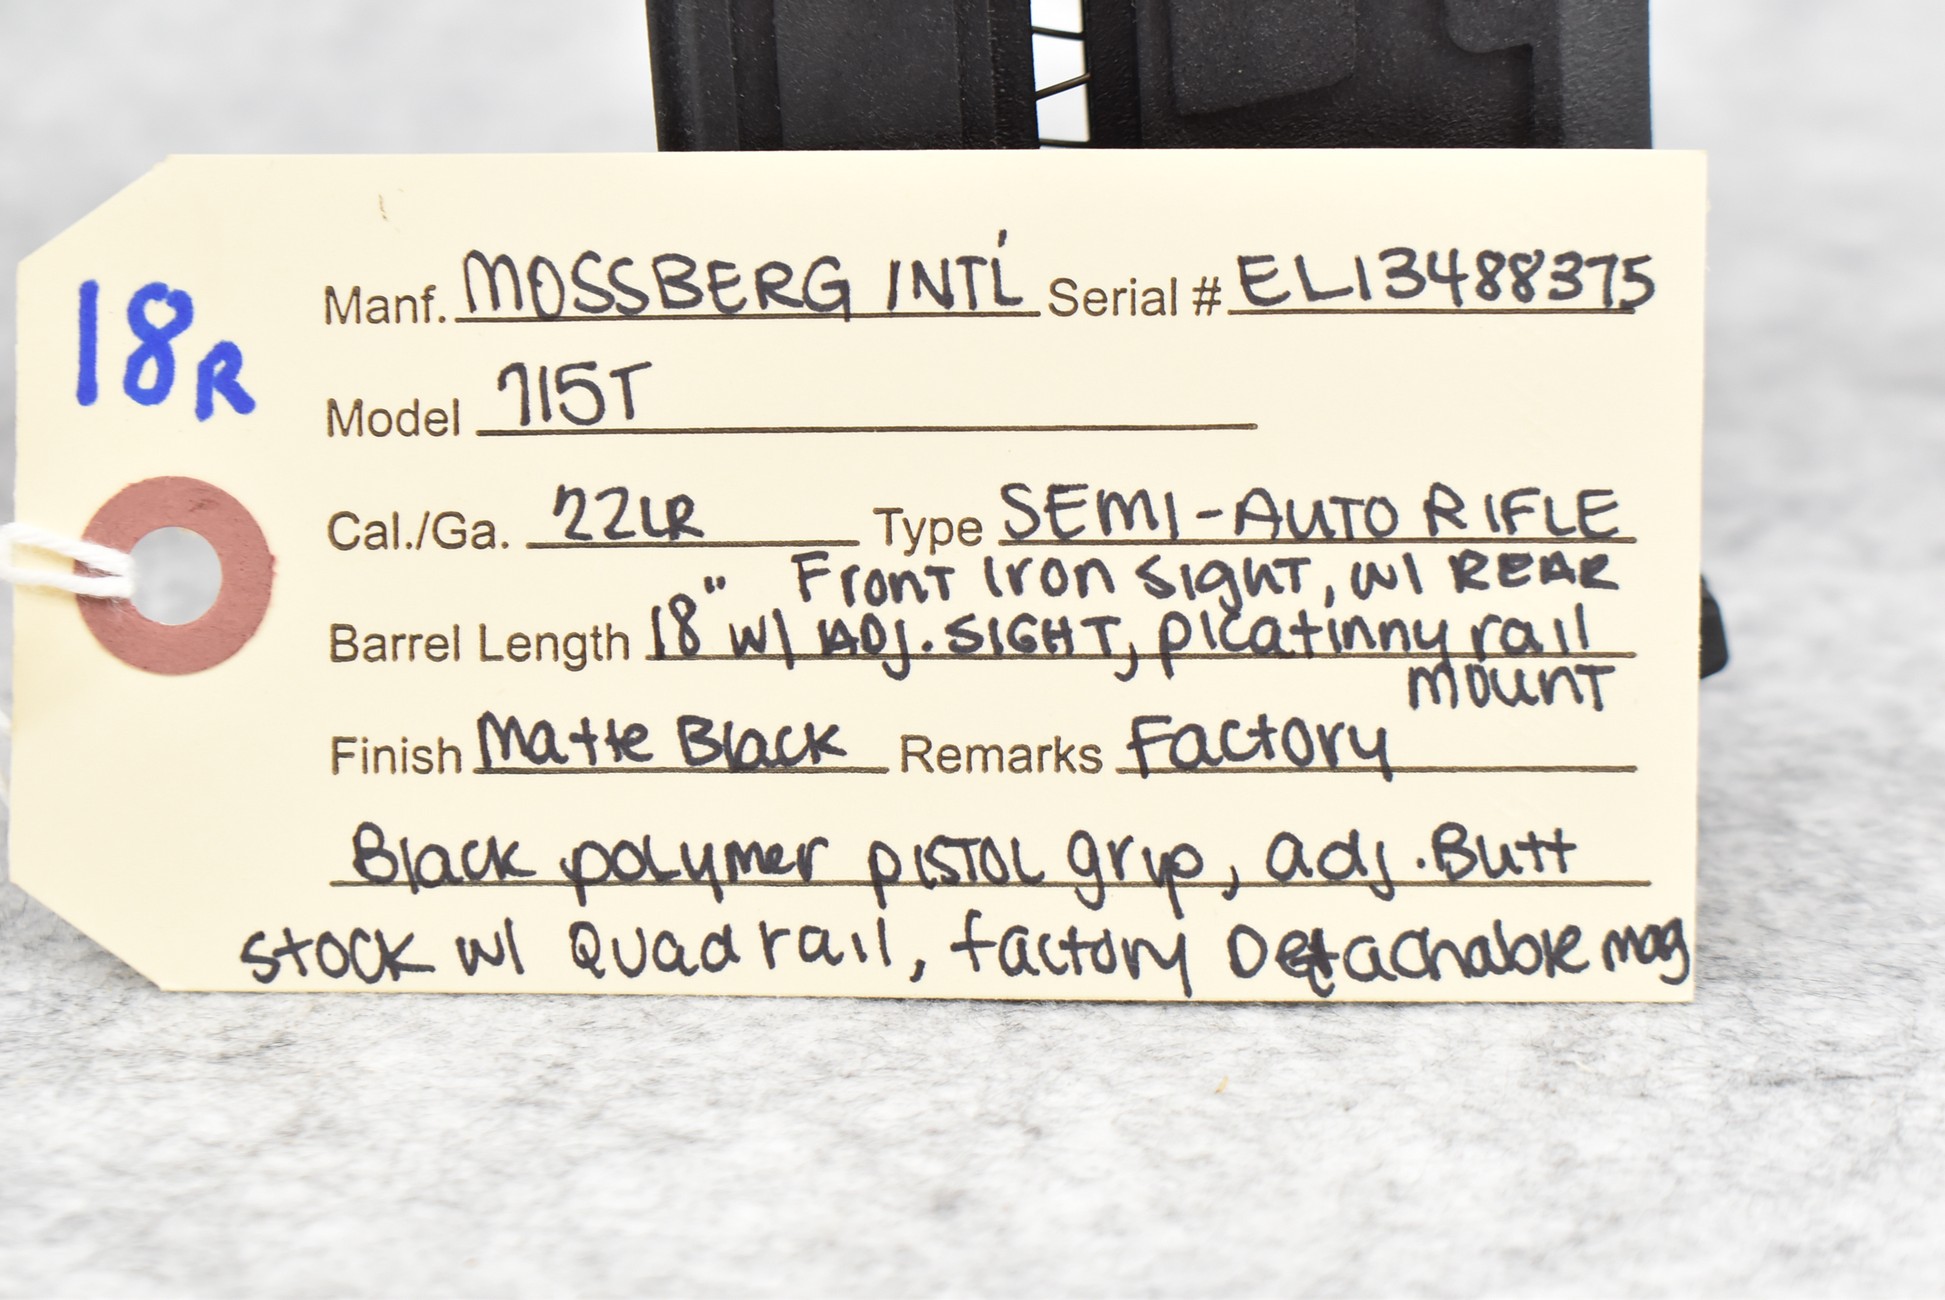 18R
Manf. MOSSBERG INT'L Serial # ELI3488375
Model 715T
Cal./Ga. 22LR Type SEMI-AUTO RIFLE
Front Iron Sight, w/ REAR
Barrel Length 18" w/ ADJ. SIGHT, picatinny rail
mount
Finish Matte Black Remarks Factory
Black polymer pistol grip, adj. Butt
stock w/ Quad rail, factory Detachable mag